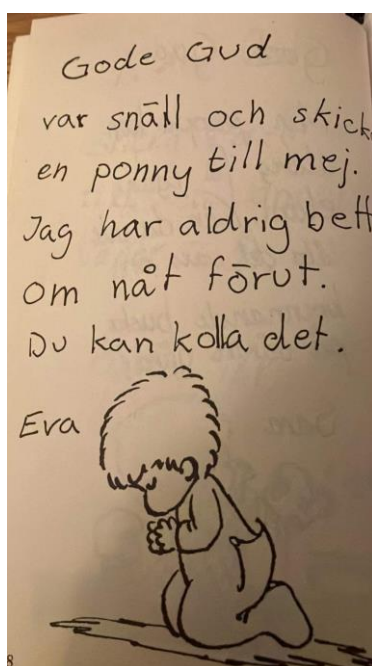 Gode Gud
var snäll och skick
en ponny till mej.
Jag har aldrig bett
om nåt förut.
Du kan kolla det.
Eva
8